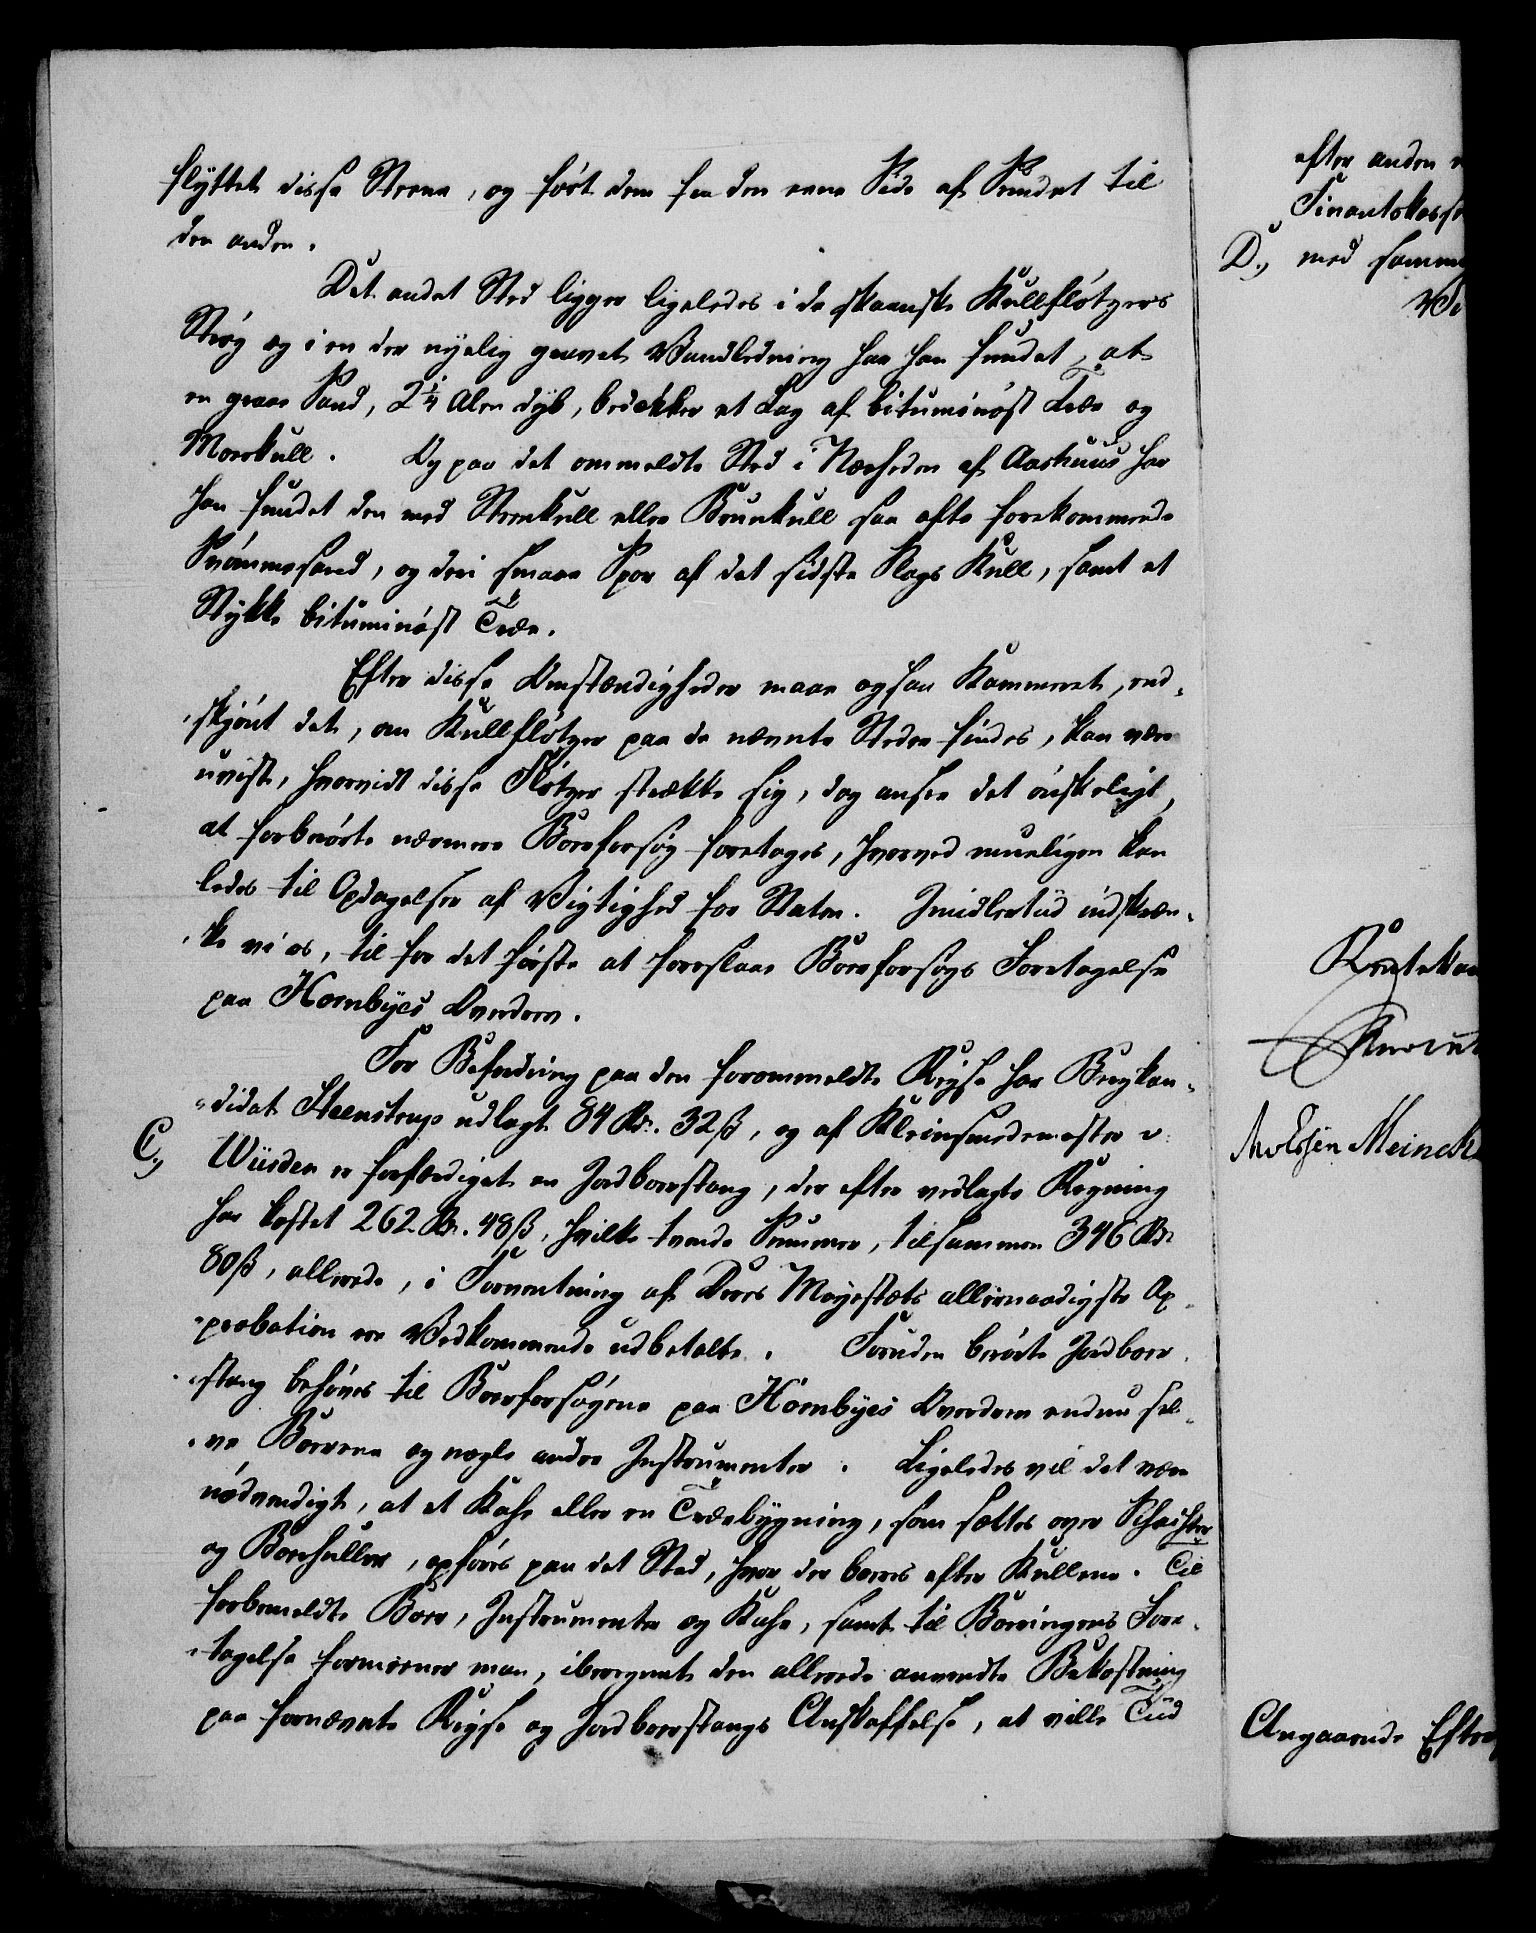 flyttet disse Steene, og ført dem fra den eene Side af Sundet til
den anden.
Det andet Sted ligger ligeledes i de skaanske Kullfløtzers
Strøg og i en der nyelig gravet Vandledning har han fundet, at
en graae Sand, 2 1/4 Alen dyb, bedækker et Lag af bituminøst Træe og
Moorkull. Og paa det ommeldte Sted i Nærheden af Aarhuus har
han fundet den med Steenkull eller Bruunkull saa ofte forekommende
Svømmesand, og deri smaae Spor af det sidste Slags Kull, samt et
Stykke bituminøst Træe.
Efter disse Omstændigheder maae ogsaa Kammeret, end-
skjønt det, om Kullfløtzer paa de nævnte Steder findes, kan være
uvist, hvorvidt disse Fløtzer strække sig, dog ansee det ønskeligt,
at forberørte nærmere Boreforsøg foretages, hvorved mueligen kan
ledes til Opdagelser af Vigtighed for Staten. Imidlertid indskræn-
ke vi os, til for det første at foreslaae Boreforsøgs Foretagelse
paa Hornbyes Overdrev.
For Befordring paa den forommeldte Reyse har Bergkan-
didat Steenstrup udlagt 84 Rd. 32 ß, og af Kleinsmedemester v:
C., Würden er forfærdiget en Jordborestang, der efter vedlagte Regning
har kostet 262 Rd. 48 ß, hvilke tvende Summer, tilsammen 346 Rd
80 ß, allerede, i Forventning af Deres Majestæts allernaadigste Ap-
probation ere Vedkommende udbetalte. Foruden berørte Jordbore-
stang behøves til Boreforsøgene paa Hornbyes Overdrev endnu sel-
ve Borene og nogle andre Instrumenter. Ligeledes vil det være
nødvendigt, at et Kahe eller en Træebygning, som sættes over Schachter
og Borehuller, opføres paa det Sted, hvor der bores efter Kullene. Til
forbemeldte Bore, Instrumenter og Kahe, samt til Boringens Fore-
tagelse formeener man, iberegnet den allerede anvendte Bekostning
paa fornævnte Reyse og Jordborestangs Anskaffelse, at ville
efter anden
Finantskasse
D., med samme
Rentekam
Meinck
Angaaende Efter